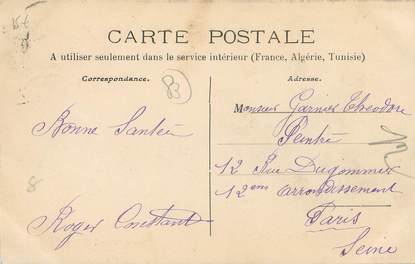 CARTE POSTALE
A utiliser seulement dans le service intérieur (France, Algérie, Tunisie)
Correspondance.
Adresse.
83
Bonne Santée
Roger Constant
Monsieur Garnier Théodore
Peintre
12 Rue Dugommier
12ème Arrondissement
Paris
Seine
8